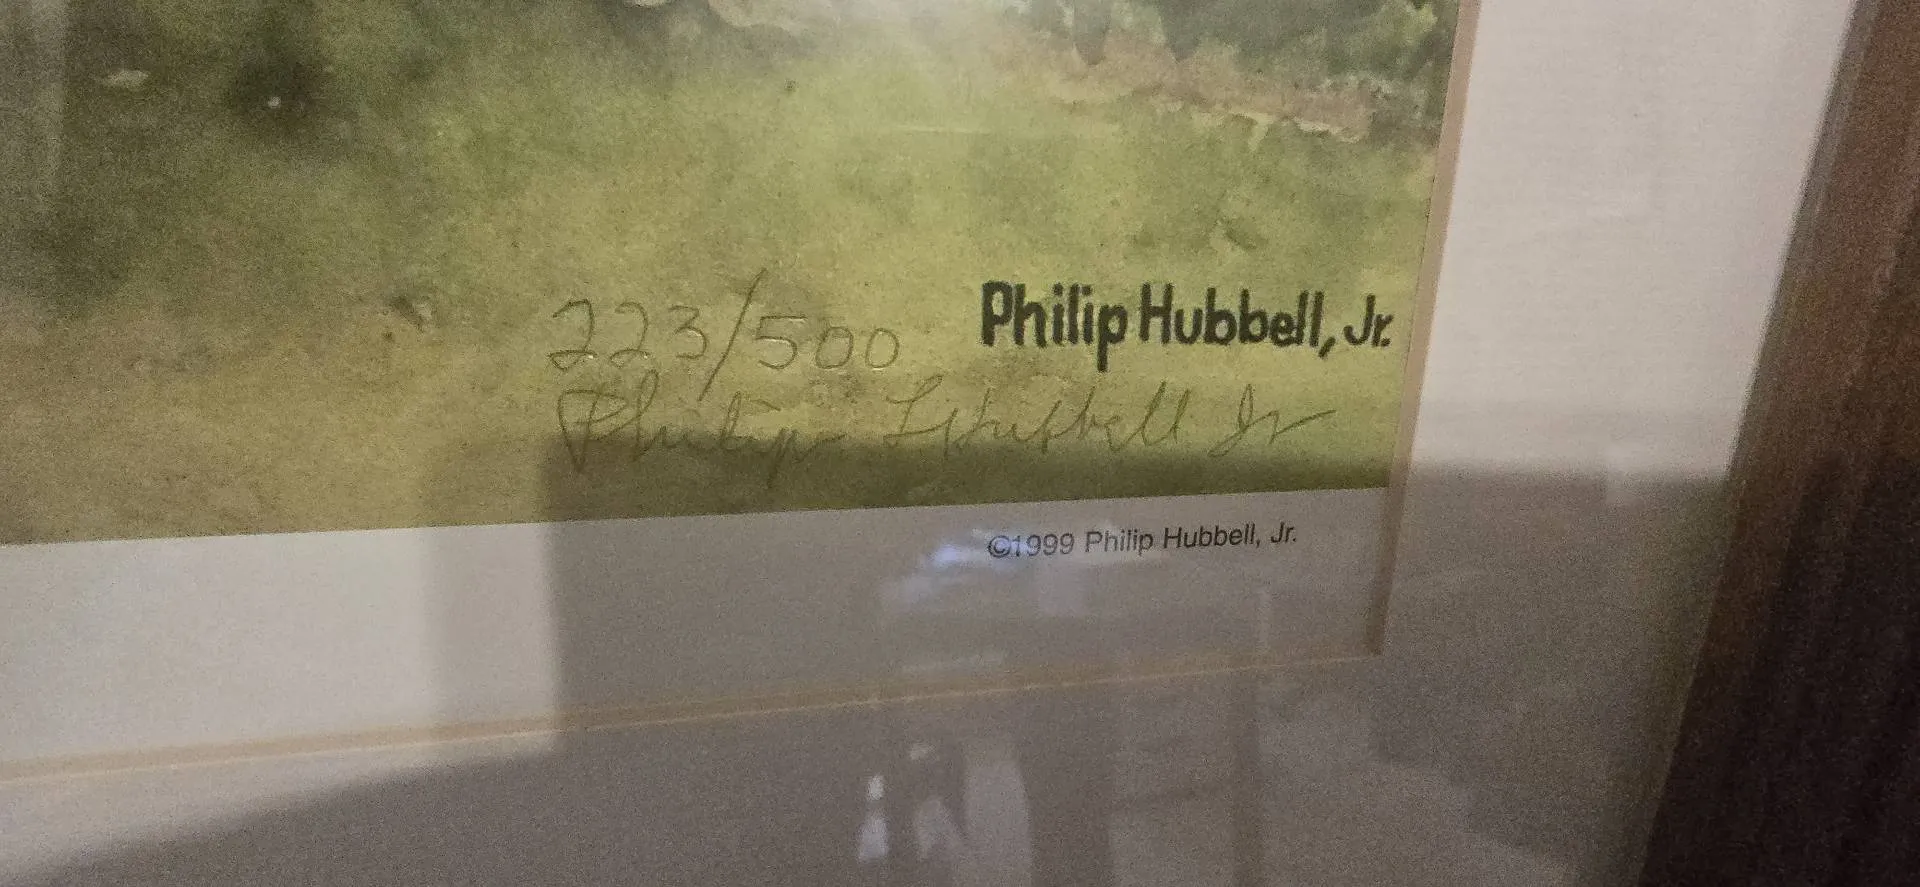 223/500
Philip Hubbell, Jr.
Philip L Hubbell Jr
©1999 Philip Hubbell, Jr.